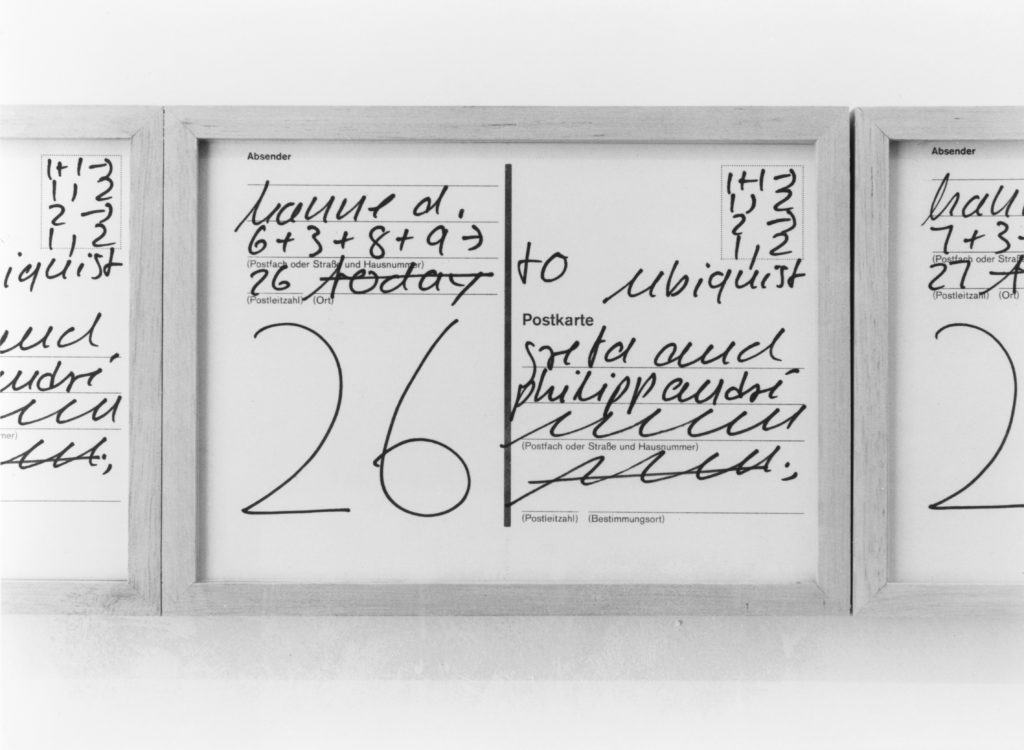 1+1→
1, 2
2 →
1, 2
iquist
and
andré
Absender
hanne d.
6+3+8+9→
(Postfach oder Straße und Hausnummer)
26 today
(Postleitzahl) (Ort)
26
1+1→
1, 2
2 →
1, 2
to ubiquist
Postkarte
greta and
philipp andré
(Postfach oder Straße und Hausnummer)
(Postleitzahl) (Bestimmungsort)
Absender
7+3+
(Postfach oder Straße
27
(Postleitzahl) (Ort)
2